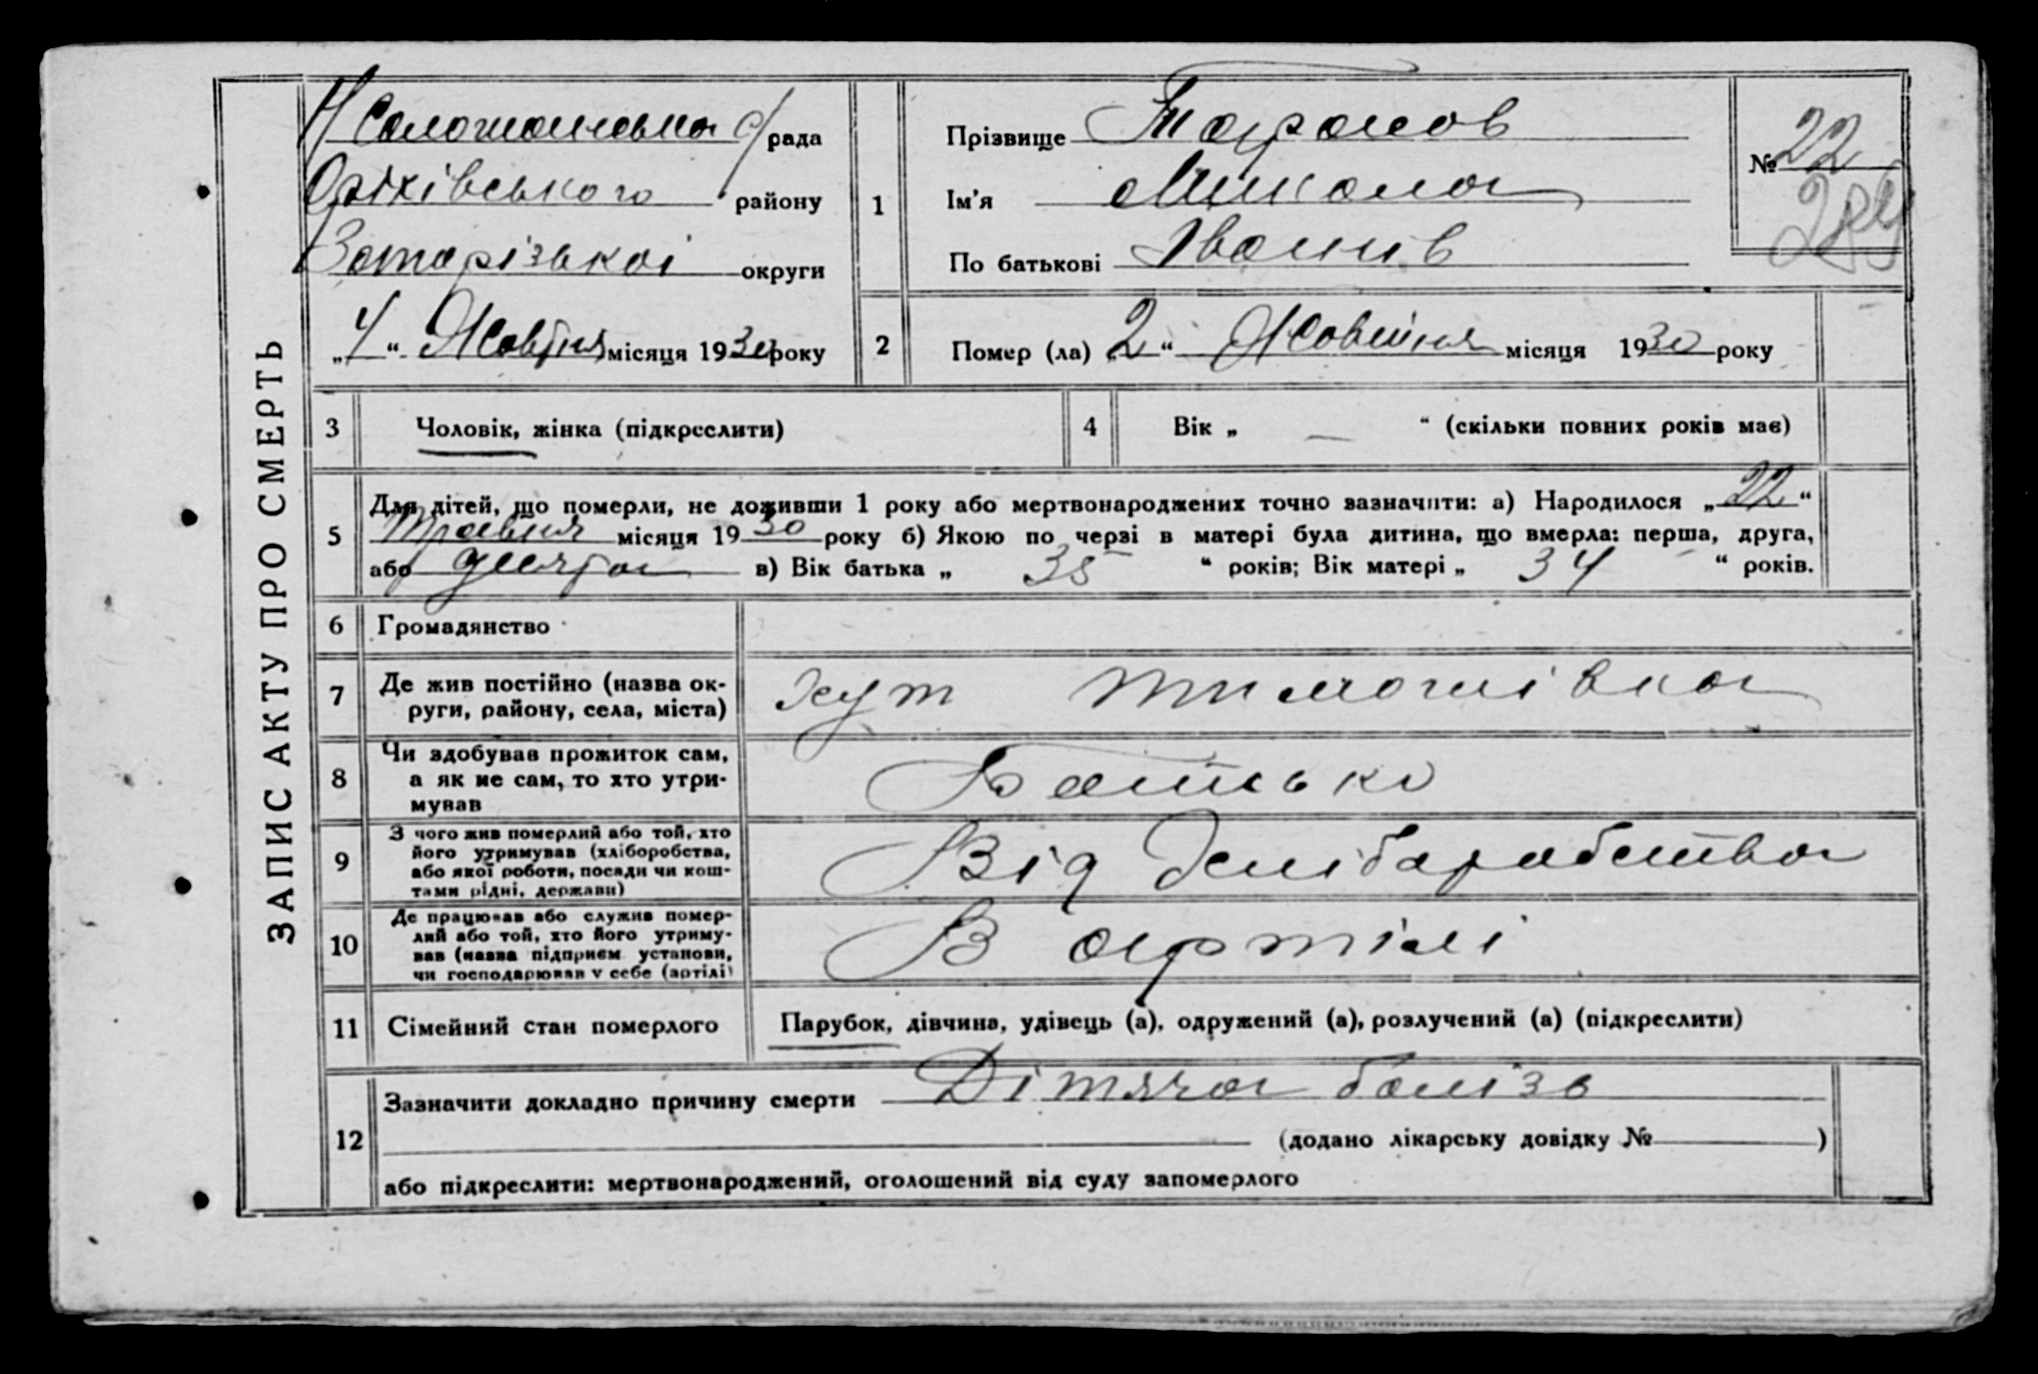 ЗАПИС АКТУ ПРО СМЕРТЬ
с/рада
Оріхівського району
Запорізької округи
„4“ Жовтня місяця 1930 року
1
Прізвище Таранов
Ім'я Микола
По батькові Іванів
№ 22
2
Помер (ла) „2“ Жовтня місяця 1930 року
3
Чоловік, жінка (підкреслити)
4
Вік „ — “ (скільки повних років має)
5
Для дітей, що померли, не доживши 1 року або мертвонароджених точно зазначити: а) Народилося „22“
Травня місяця 1930 року б) Якою по черзі в матері була дитина, що вмерла: перша, друга,
або в) Вік батька „ 35 “ років; Вік матері „ 34 “ років.
6
Громадянство
7
Де жив постійно (назва ок-
руги, району, села, міста)
Хут Тимошівка
8
Чи здобував прожиток сам,
а як не сам, то хто утри-
мував
Батько
9
З чого жив померлий або той, хто
його утримував (хліборобства,
або якої роботи, посади чи кош-
тами рідні, держави)
Від
10
Де працював або служив помер-
лий або той, хто його утриму-
вав (назва підприєм установи,
чи господарював у себе (артілі)
В артілі
11
Сімейний стан померлого
Парубок, дівчина, удівець (а), одружений (а), розлучений (а) (підкреслити)
12
Зазначити докладно причину смерти Дітяча болізь
(додано лікарську довідку № )
або підкреслити: мертвонароджений, оголошений від суду запомерлого